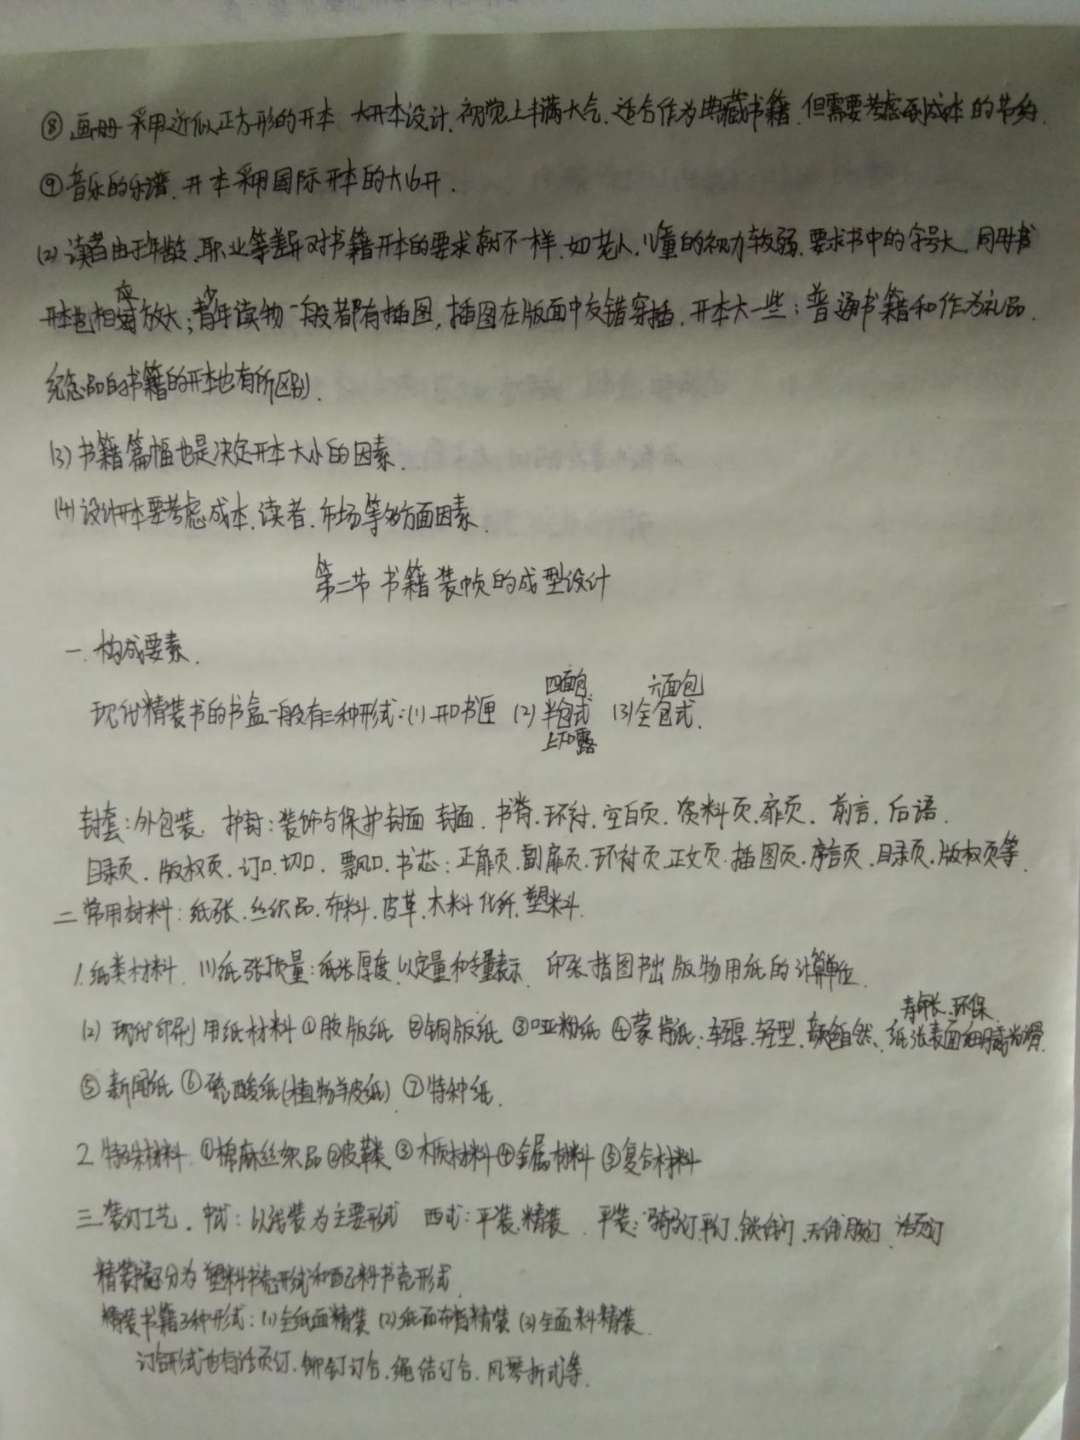 ⑧画册 采用近似正方形的开本 大开本设计、视觉上丰满大气、适合作为典藏书籍、但需要考虑到成本的节约.
⑨音乐的乐谱、开本采用国际开本的大16开.
(2)读者由于年龄、职业等差异对书籍开本的要求就不一样、如老人、儿童的视力较弱、要求书中的字号大、同时
开本也相应放大;青少年读物一般都有插图,插图在版面中交错穿插,开本大一些;普通书籍和作为礼品、
纪念品的书籍的开本也有所区别.
(3)书籍篇幅也是决定开本大小的因素.
(4)设计开本要考虑成本、读者、市场等多方面因素.
第二节 书籍装帧的成型设计
一.构成要素.
四面包 六面包
现代精装书的书盒一般有三种形式:(1)开口书匣 (2)半包式 (3)全包式.
上下口露
封套:外包装. 护封:装饰与保护封面 封面、书脊、环衬、空白页、资料页、扉页、前言、后语、
目录页、版权页、订口、切口、飘口、书芯:正扉页、副扉页、环衬页、正文页、插图页、序言页、目录页、版权页等.
二.常用材料:纸张、丝织品、布料、皮革、木料、化纤、塑料.
1.纸类材料 (1)纸张质量:纸张厚度,以定量和令重表示. 印张,指图书出版物用纸的计算单位.
寿命长、环保
(2)现代印刷用纸材料 ①胶版纸 ②铜版纸 ③哑粉纸 ④蒙肯纸:轻厚、轻型、颜色自然、纸张表面细腻光滑.
⑤新闻纸 ⑥硫酸纸(植物羊皮纸) ⑦特种纸.
2.特殊材料 ①棉麻丝织品 ②皮革类 ③木质材料 ④金属材料 ⑤复合材料
三.装订工艺. 中式:以线装为主要形式 西式:平装、精装. 平装:骑马订、平订、锁线订、无线胶订、活页订
精装书籍分为塑料书壳形式和配料书壳形式.
精装书籍3种形式:(1)全纸面精装 (2)纸面布脊精装 (3)全面料精装.
订合形式也有活页订、铆钉订合、绳结订合、风琴折式等.